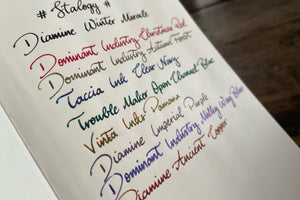 # Stalogy #
Diamine Winter Miracle
Dominant Industry Christmas Red
Dominant Industry Autumn Forest
Taccia Ink Clear Navy
Trouble Maker Open Channel Blue
Vinta Inks Pamana
Diamine Imperial Purple
Dominant Industry Milky Way Blue
Diamine Ancient Copper